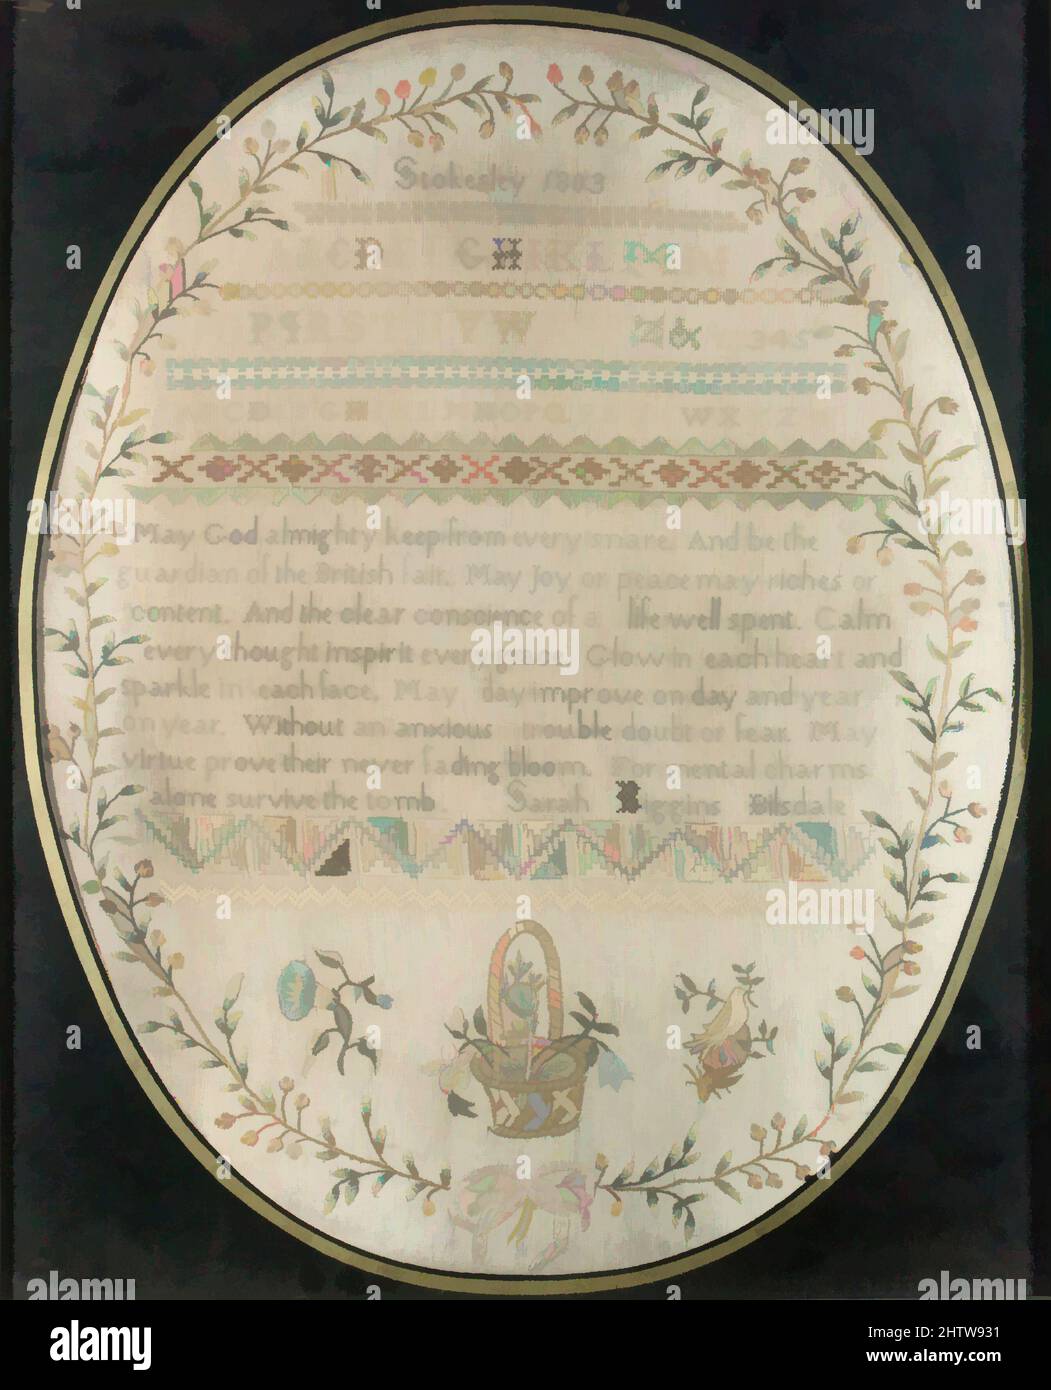 Stokesley 1803
A C D G H I K L M N
P Q R S T V W Z & 3 4 5
A B C D G H I K L M N O P Q W X Z
May God almighty keep from every snare. And be the
guardian of the British fair. May Joy or peace may riches or
content. And the clear conscience of a life well spent. Calm
every thought inspirit every grace. Glow in each heart and
sparkle in each face. May day improve on day and year
on year. Without an anxious trouble doubt or fear. May
virtue prove their never fading bloom. For mental charms
alone survive the tomb. Sarah Biggins Bilsdale
alamy
alamy
Image ID: 2HTW931
www.alamy.com